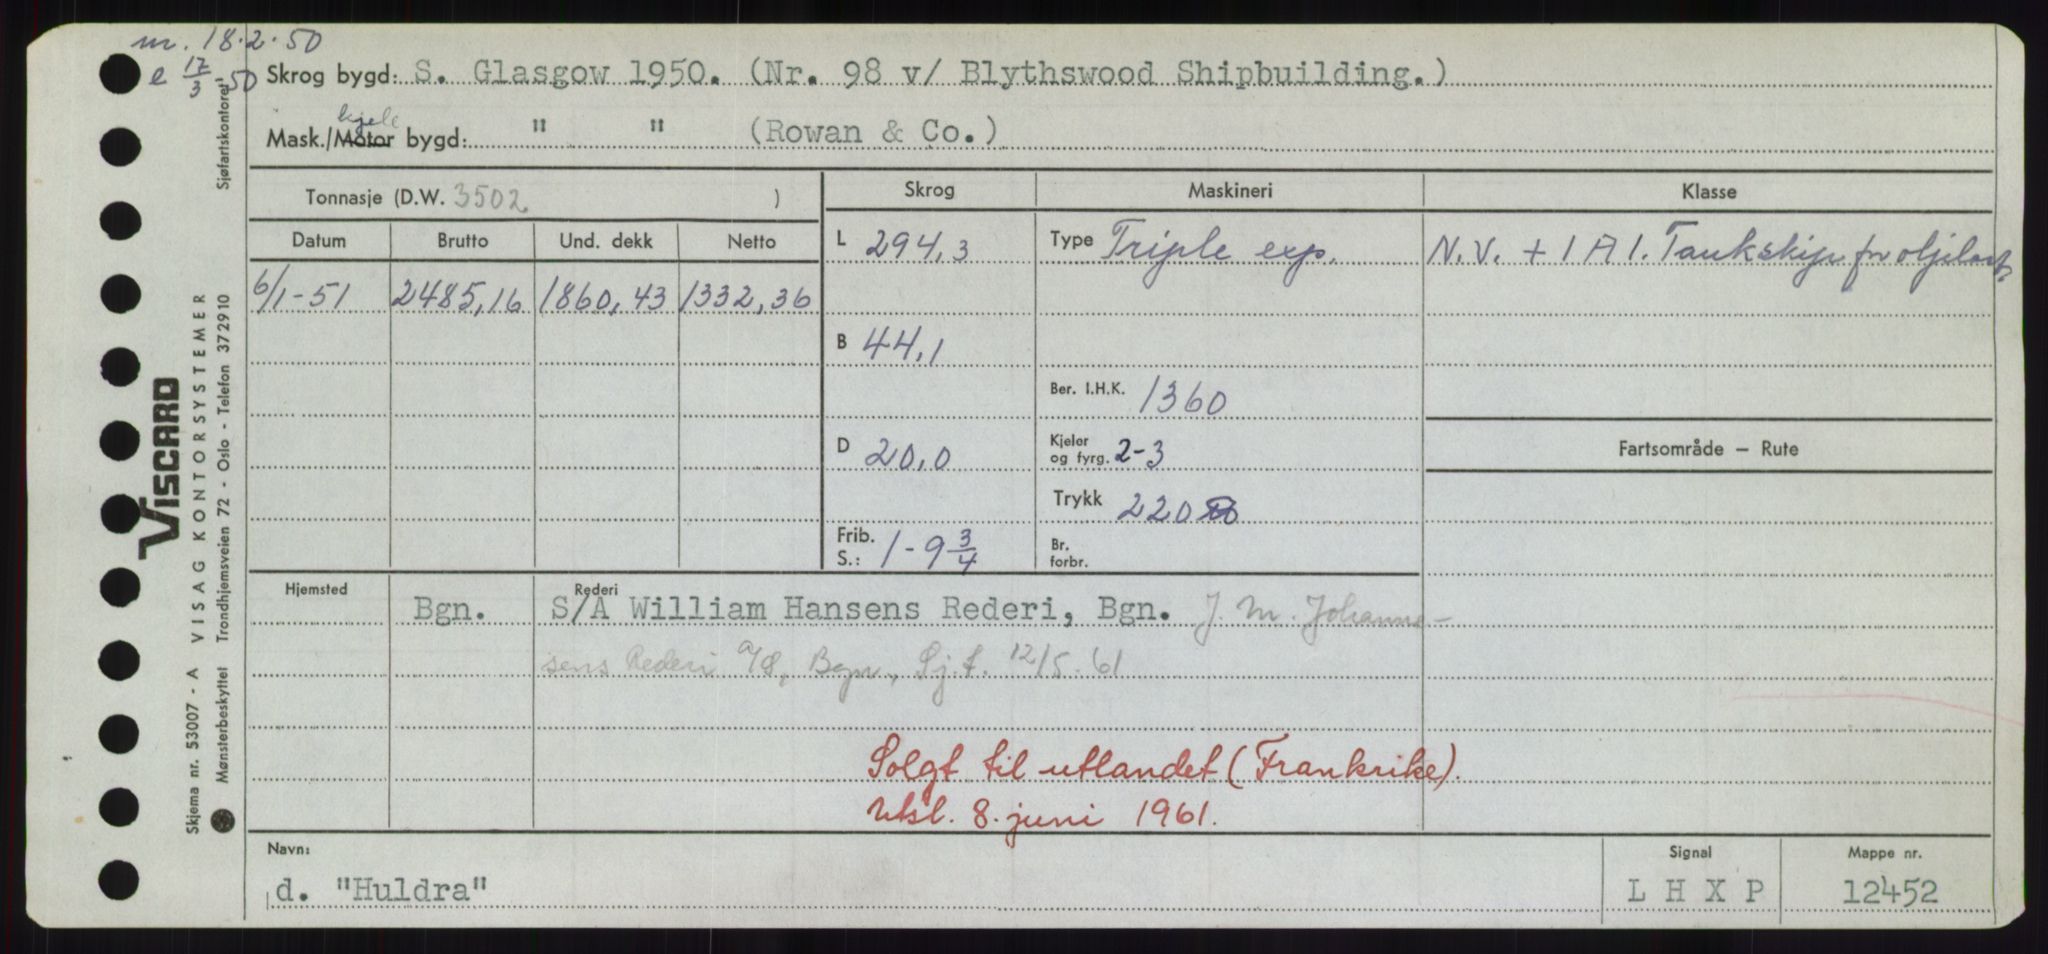 m. 18.2.50
e 17/3-50
Skrog bygd: S. Glasgow 1950. (Nr. 98 v/ Blythswood Shipbuilding.)
kjele
Mask./Motor bygd: " " (Rowan & Co.)
Tonnasje (D.W. 3502 )
Skrog
Maskineri
Klasse
Datum Brutto Und. dekk Netto
L 294,3
Type Triple exp.
N.V. + 1 A 1. Tankskip for oljelast
6/1-51 2485,16 1860,43 1332,36
B 44,1
Ber. I.H.K. 1360
D 20,0
Kjeler og fyrg. 2-3
Fartsområde – Rute
Trykk 220
Frib. S.: 1-9 3/4
Br. forbr.
Hjemsted
Rederi
Bgn. S/A William Hansens Rederi, Bgn. J. M. Johanne-
sens Rederi A/S, Bgn., Sj.f. 12/5.61
Solgt til utlandet (Frankrike).
Utsl. 8. juni 1961.
Navn:
d. "Huldra"
Signal
L H X P
Mappe nr.
12452
VISCARD
VISAG KONTORSYSTEMER
Skjema nr. 53007 - A
Mønsterbeskyttet Trondhjemsveien 72 - Oslo - Telefon 372910
Sjøfartskontoret